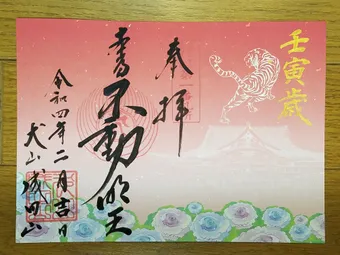 壬寅歳
奉拝
不動明王
令和四年二月吉日
犬山成田山